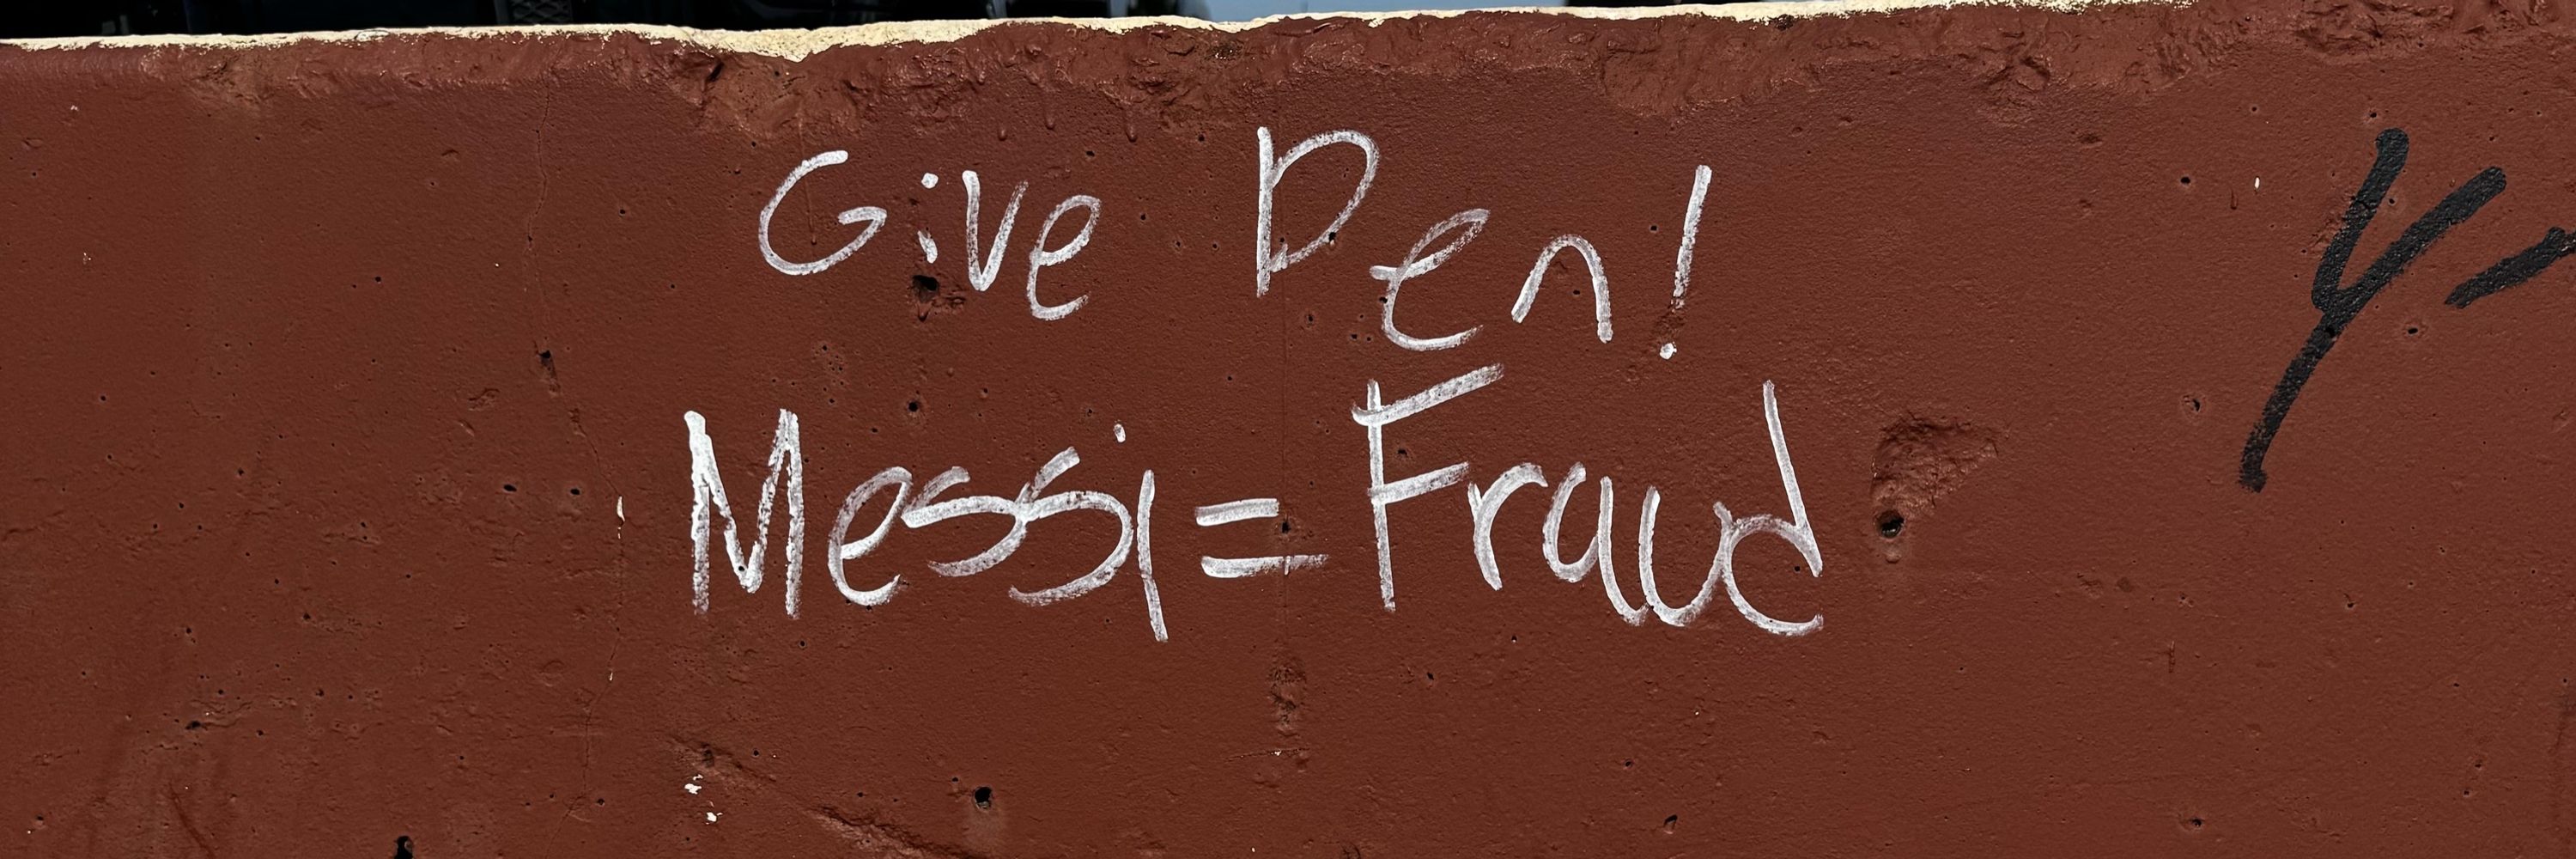 Give Pen!
Messi = Fraud